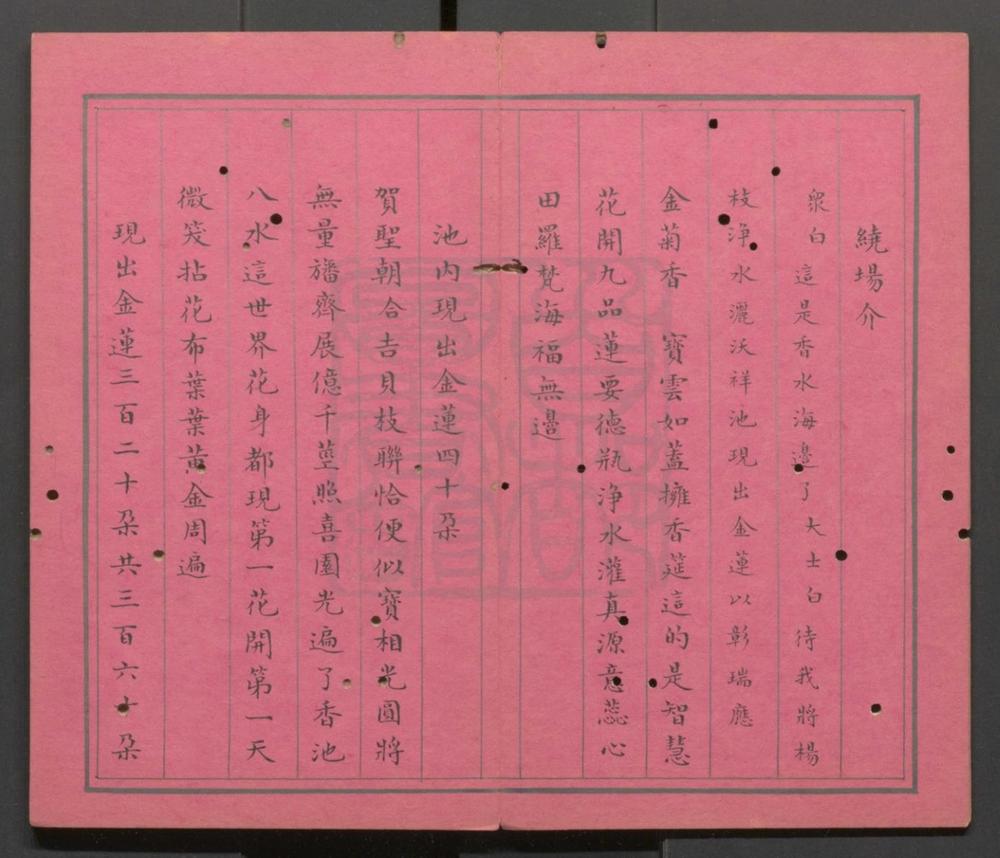 繞場介
衆白　這是香水海邊了大士白待我將楊
枝淨水灑沃祥池現出金蓮以彰瑞應
金菊香　寶雲如葢擁香筵這的是智慧
花開九品蓮要德瓶淨水灌真源意蕊心
田羅梵海福無邊
池内現出金蓮四十朶
賀聖朝合吉貝枝聯恰便似寶相光圓將
無量旛齊展億千莖照喜園光遍了香池
八水這世界花身都現第一花開第一天
微笑拈花布葉葉黃金周遍
現出金蓮三百二十朶共三百六十朶